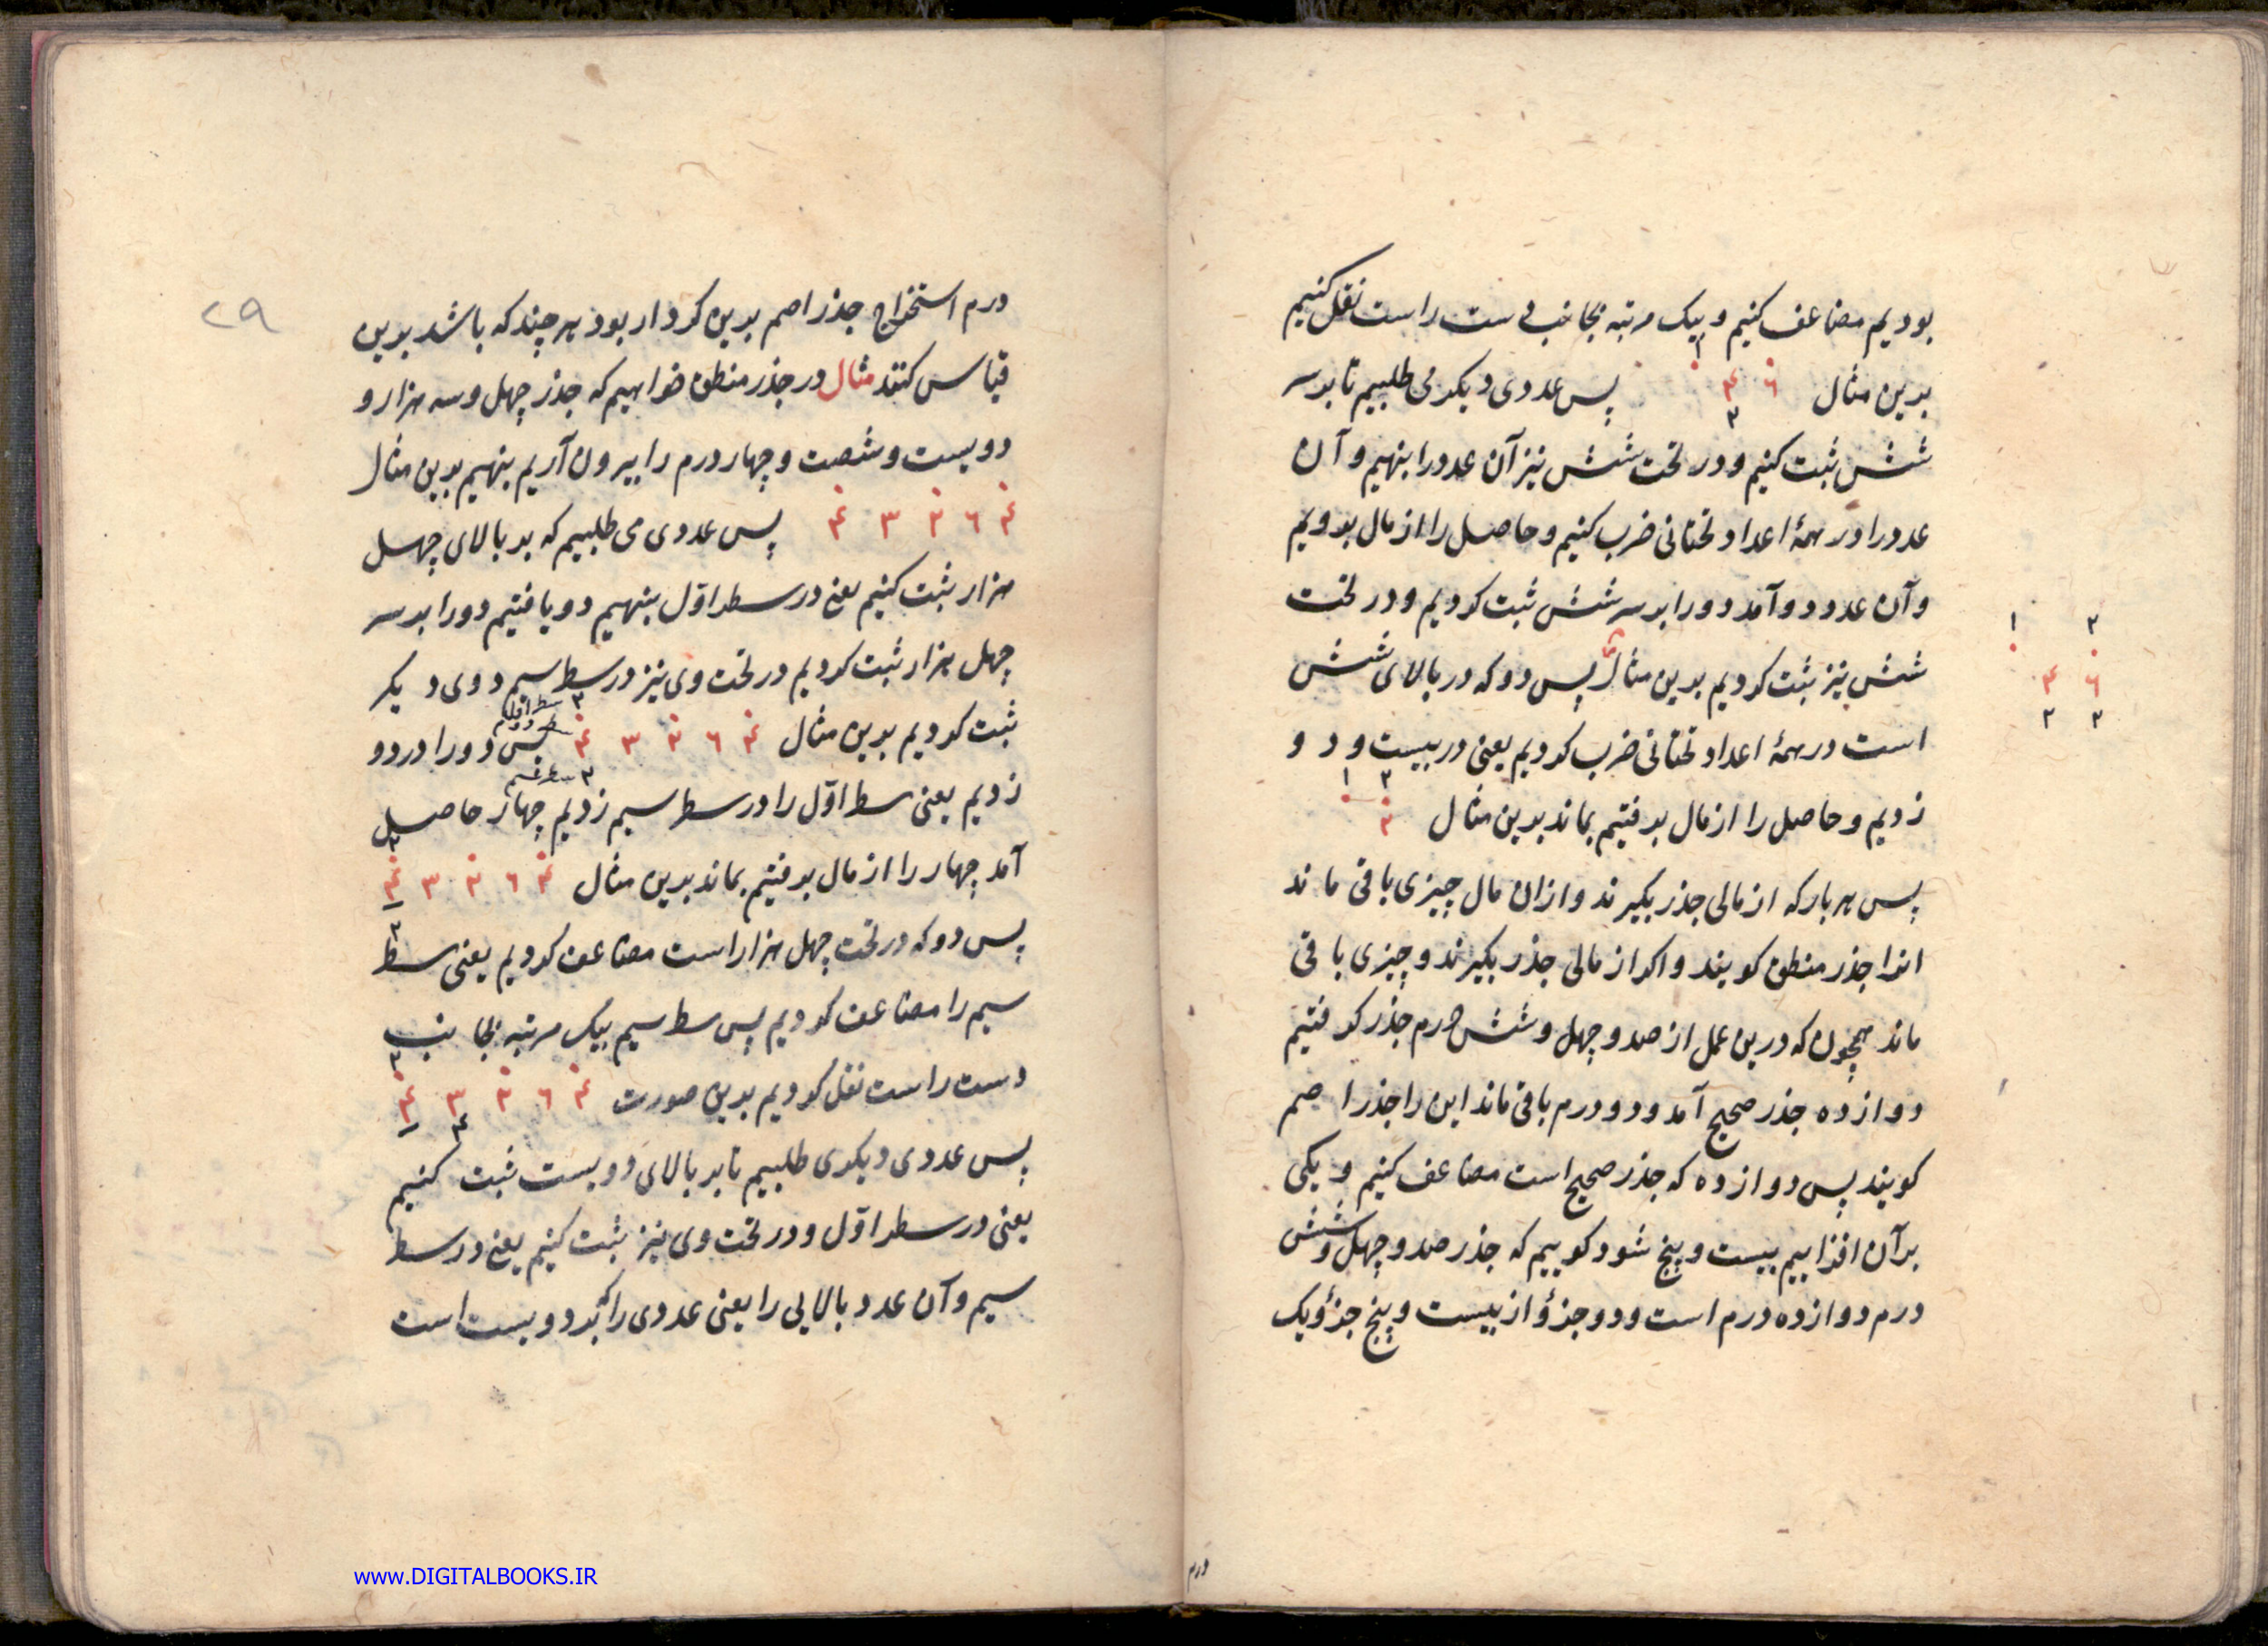 بودیم مضاعف کنیم و بیک مرتبه بجانب دست راست نقل کنیم
بدین مثال ۴ ۶ پس عددی دیگر می طلبیم تا بر سر
شش ثبت کنیم و در تحت شش نیز آن عدد را بنهیم و آن
عدد را در همهٔ اعداد تحتانی ضرب کنیم و حاصل را از مال برویم
و آن عدد دو آمد دو را بر سر شش ثبت کردیم و در تحت
شش نیز ثبت کردیم بدین مثال پس دو که در بالای شش
است در همهٔ اعداد تحتانی ضرب کردیم یعنی در بیست و دو
زدیم و حاصل را از مال برفتیم بماند بدین مثال
پس هر بار که از مالی جذر بگیرند و ازان مال چیزی باقی ماند
انرا جذر منطق کویند و اکر از مالی جذر بگیرند و چیزی باقی
ماند همچون که درین عمل از صد و چهل و شش درم جذر کرفتیم
دوازده جذر صحیح آمد و دو درم باقی ماند این را جذر اصم
کویند پس دوازده که جذر صحیح است مضاعف کنیم و یکی
برآن افزاییم بیست و پنج شود کوییم که جذر صد و چهل و شش
درم دوازده درم است و دو جزؤ از بیست و پنج جزؤ یک
۱ ۲
۴ ۶
۲ ۲
درم
۲۹
درم استخراج جذر اصم بدین کردار بود هر چند که باشد برین
قیاس کنند مثال در جذر منطق خواهیم که جذر چهل و سه هزار و
دویست و شصت و چهار درم را بیرون آریم بنهیم بدین مثال
۴ ۳ ۲ ۶ ۴ پس عددی می طلبیم که بر بالای چهل
هزار ثبت کنیم یعنی در سطر اوّل بنهیم دو یافتیم دو را بر سر
چهل هزار ثبت کردیم در تحت وی نیز در سط سیم دوی دیکر
ثبت کردیم بدین مثال ۴ ۳ ۲ ۶ ۴ پس دو را در دو
زدیم یعنی سط اوّل را در سط سیم زدیم چهار حاصل
آمد چهار را از مال برفتیم بماند بدین مثال ۴ ۳ ۲ ۶ ۴
پس دو که در تحت چهل هزار است مضاعف کردیم یعنی سط
سیم را مضاعف کردیم پس سط سیم بیک مرتبه بجانب
دست راست نقل کردیم بدین صورت ۴ ۳ ۲ ۶ ۴
پس عددی دیکر می طلبیم تا بر بالای دویست ثبت کنیم
یعنی در سطر اوّل و در تحت وی نیز ثبت کنیم یعنی در سط
سیم و آن عدد بالایی را یعنی عددی را که بر دویست است
www.DIGITALBOOKS.IR